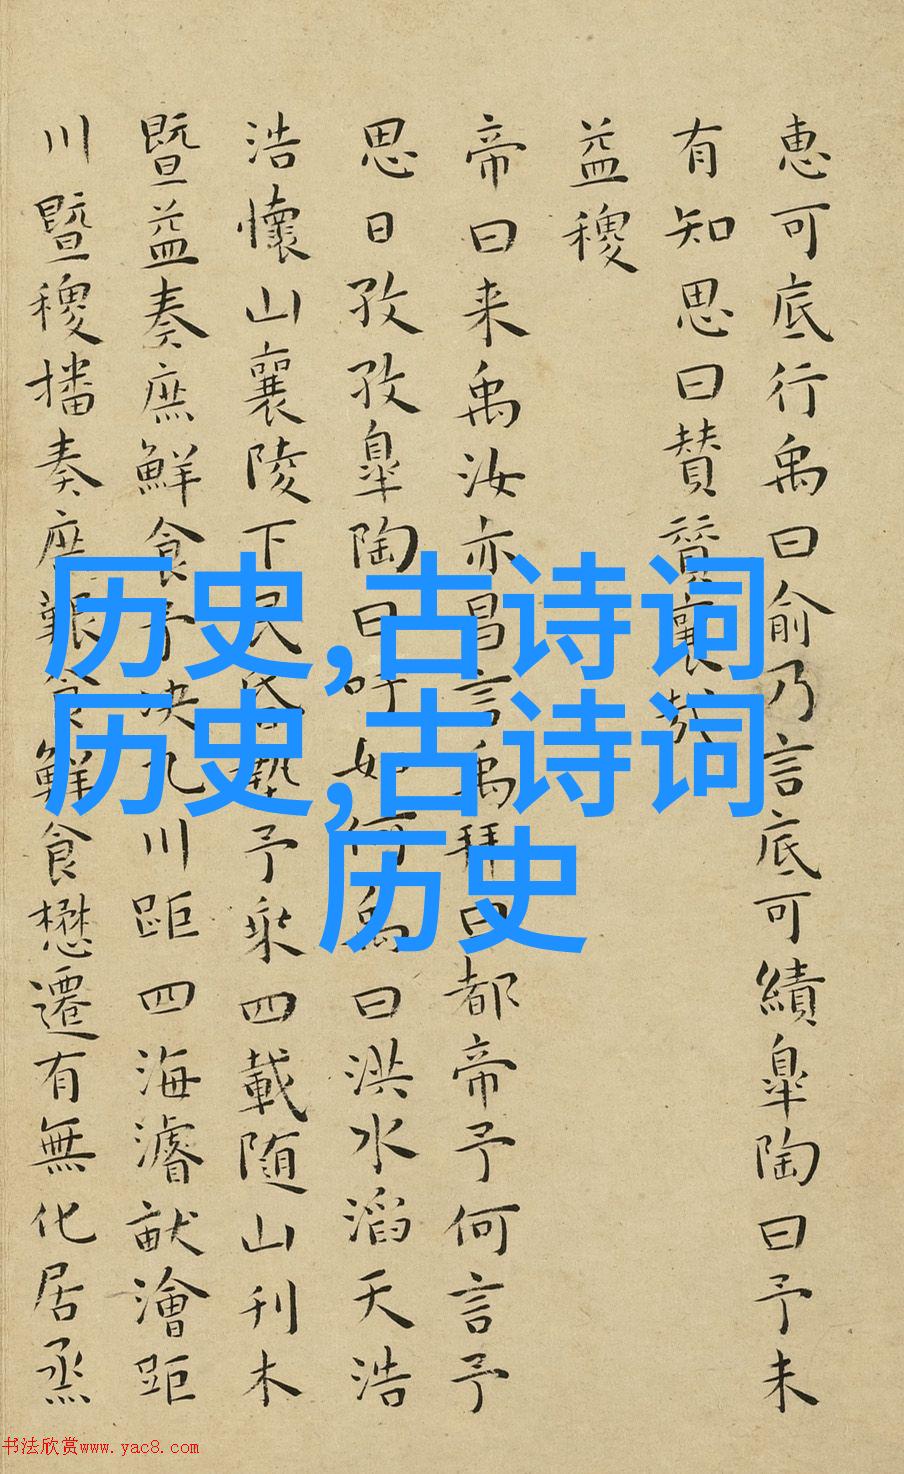 惠可底行禹曰俞乃言底可績皐陶曰予未
有知思曰賛賛襄哉
益稷
帝曰来禹汝亦昌言禹拜曰都帝予何言予
思日孜孜皐陶曰吁如何禹曰洪水滔天浩
浩懷山襄陵下民昏墊予乘四載随山刊木
暨益奏庶鮮食予决九川距四海濬畎澮距
川暨稷播奏庶艱食鮮食懋遷有無化居烝
历史,古诗词
历史,古诗词
历史
书法欣赏www.yac8.com